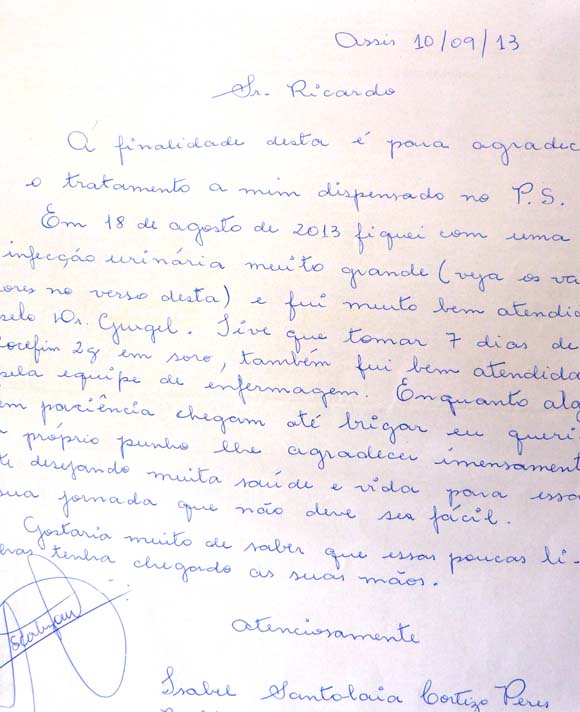 Assis 10/09/13
Sr. Ricardo
A finalidade desta é para agradec
o tratamento a mim dispensado no P.S.
Em 18 de agosto de 2013 fiquei com uma
infecção urinária muito grande (veja os va
ores no verso desta) e fui muito bem atendid
pelo Dr. Gurgel. Tive que tomar 7 dias de
rocefim 2g em soro, também fui bem atendida
pela equipe de enfermagem. Enquanto alg
em paciência chegam até brigar eu queri
próprio punho lhe agradecer imensament
te desejando muita saúde e vida para essa
sua jornada que não deve ser fácil.
Gostaria muito de saber que essas poucas li-
nhas tenha chegado as suas mãos.
Atenciosamente
Isabel Santolaia Cortizo Peres